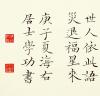 世人依此語
災退福星來
庚子夏海右
居士學功書